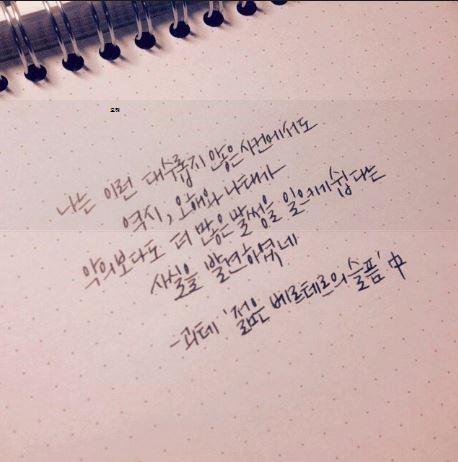 나는 이런 대수롭지 않은 사건에서도
역시, 오해와 나태가
악의보다도 더 많은 말썽을 일으키기 쉽다는
사실을 발견하였네
-괴테 '젊은 베르테르의 슬픔' 中